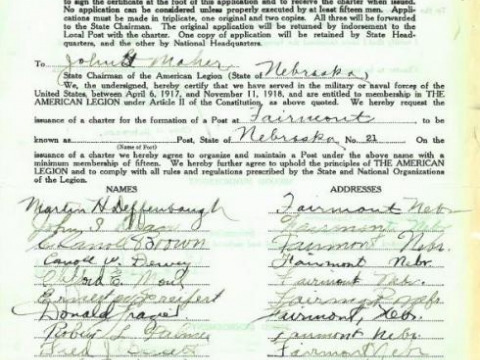 to sign the certificate at the foot of this application and to receive the charter when issued.
No application can be considered unless properly executed by at least fifteen men. Appli-
cations must be made in triplicate, one original and two copies. All three will be forwarded
to the State Chairman. The original application will be returned by indorsement to the
Local Post with the charter. One copy of application will be retained by State Head-
quarters, and the other by National Headquarters.
To John G Maher
State Chairman of the American Legion (State of Nebraska)
We, the undersigned, hereby certify that we have served in the military or naval forces of the
United States, between April 6, 1917, and November 11, 1918, and are entitled to membership in THE
AMERICAN LEGION under Article II of the Constitution, as above quoted. We hereby request the
issuance of a charter for the formation of a Post at Fairmont
known as Post, State of Nebraska No. 21 On the
(Name of Post)
issuance of a charter we hereby agree to organize and maintain a Post under the above name with a
minimum membership of fifteen. We hereby further agree to uphold the principles of THE AMERICAN
LEGION and to comply with all rules and regulations prescribed by the State and National Organizations
of the Legion.
NAMES ADDRESSES
Martin H Deffenbaugh Fairmont Nebr
John Fairmont
C Carroll Brown Fairmont Nebr.
Caroll W. Dewey Fairmont Nebr
Clifford E. Fairmont Nebr.
Fairmont Nebr
Donald Frazier Fairmont, Nebr.
Robert L Fairmont Nebr
Fred Fairmont